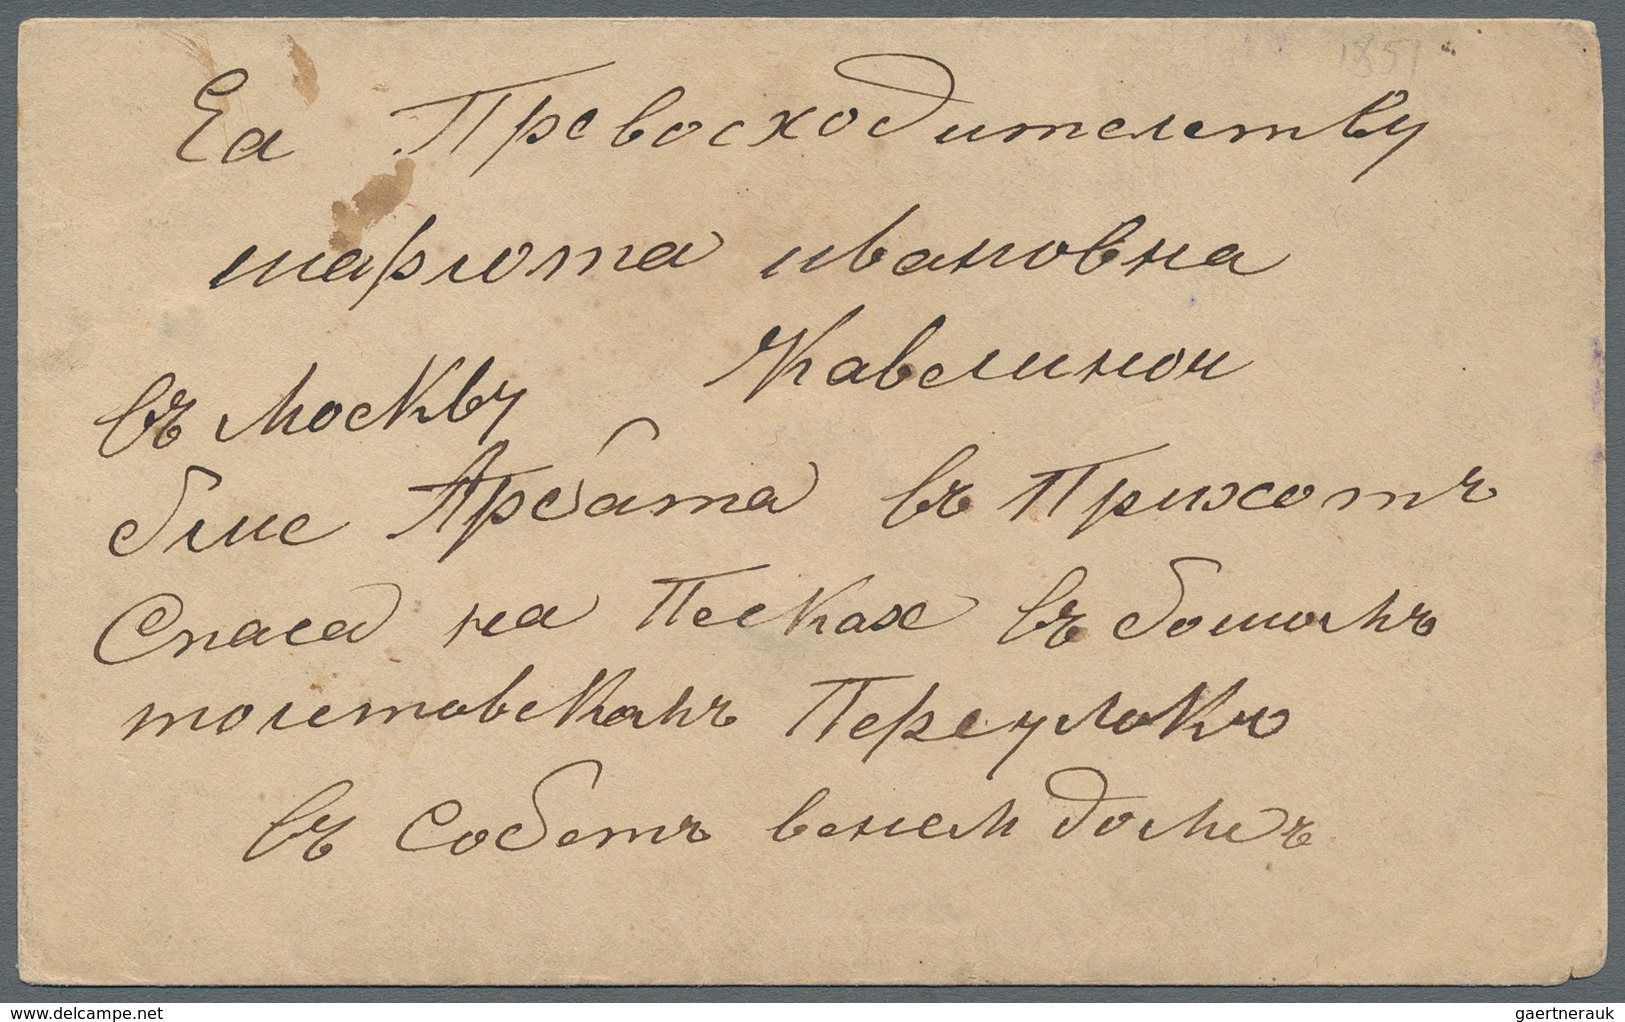 1851
Еа Превосходителству
шарлота ивановна
Кавелиной
въ Москву
блис Арбата въ Прихотъ
Спаса на Песках въ болшомъ
толстовскомъ Переулокъ
въ собстъ венем доме
delcampe.net
gaertnerauk